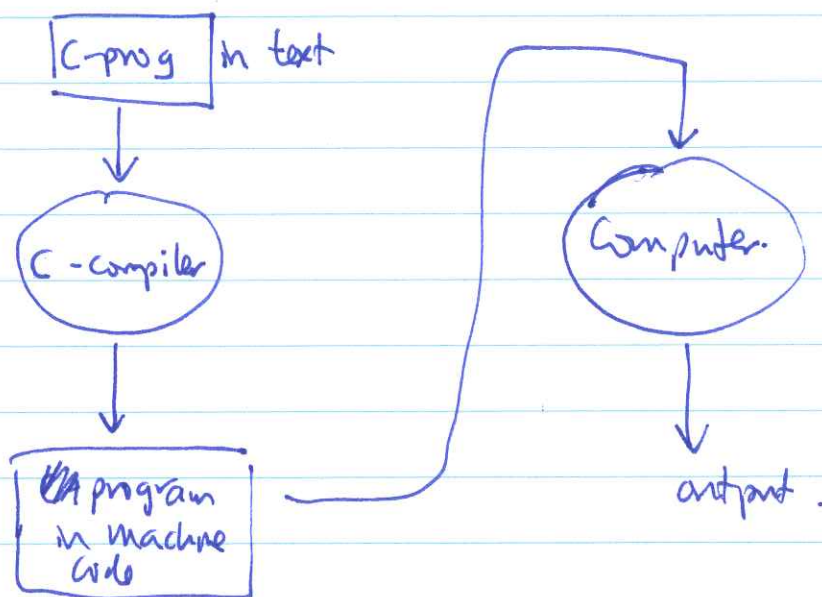 C-prog in text
C-compiler
A program
in machine
code
Computer.
output.